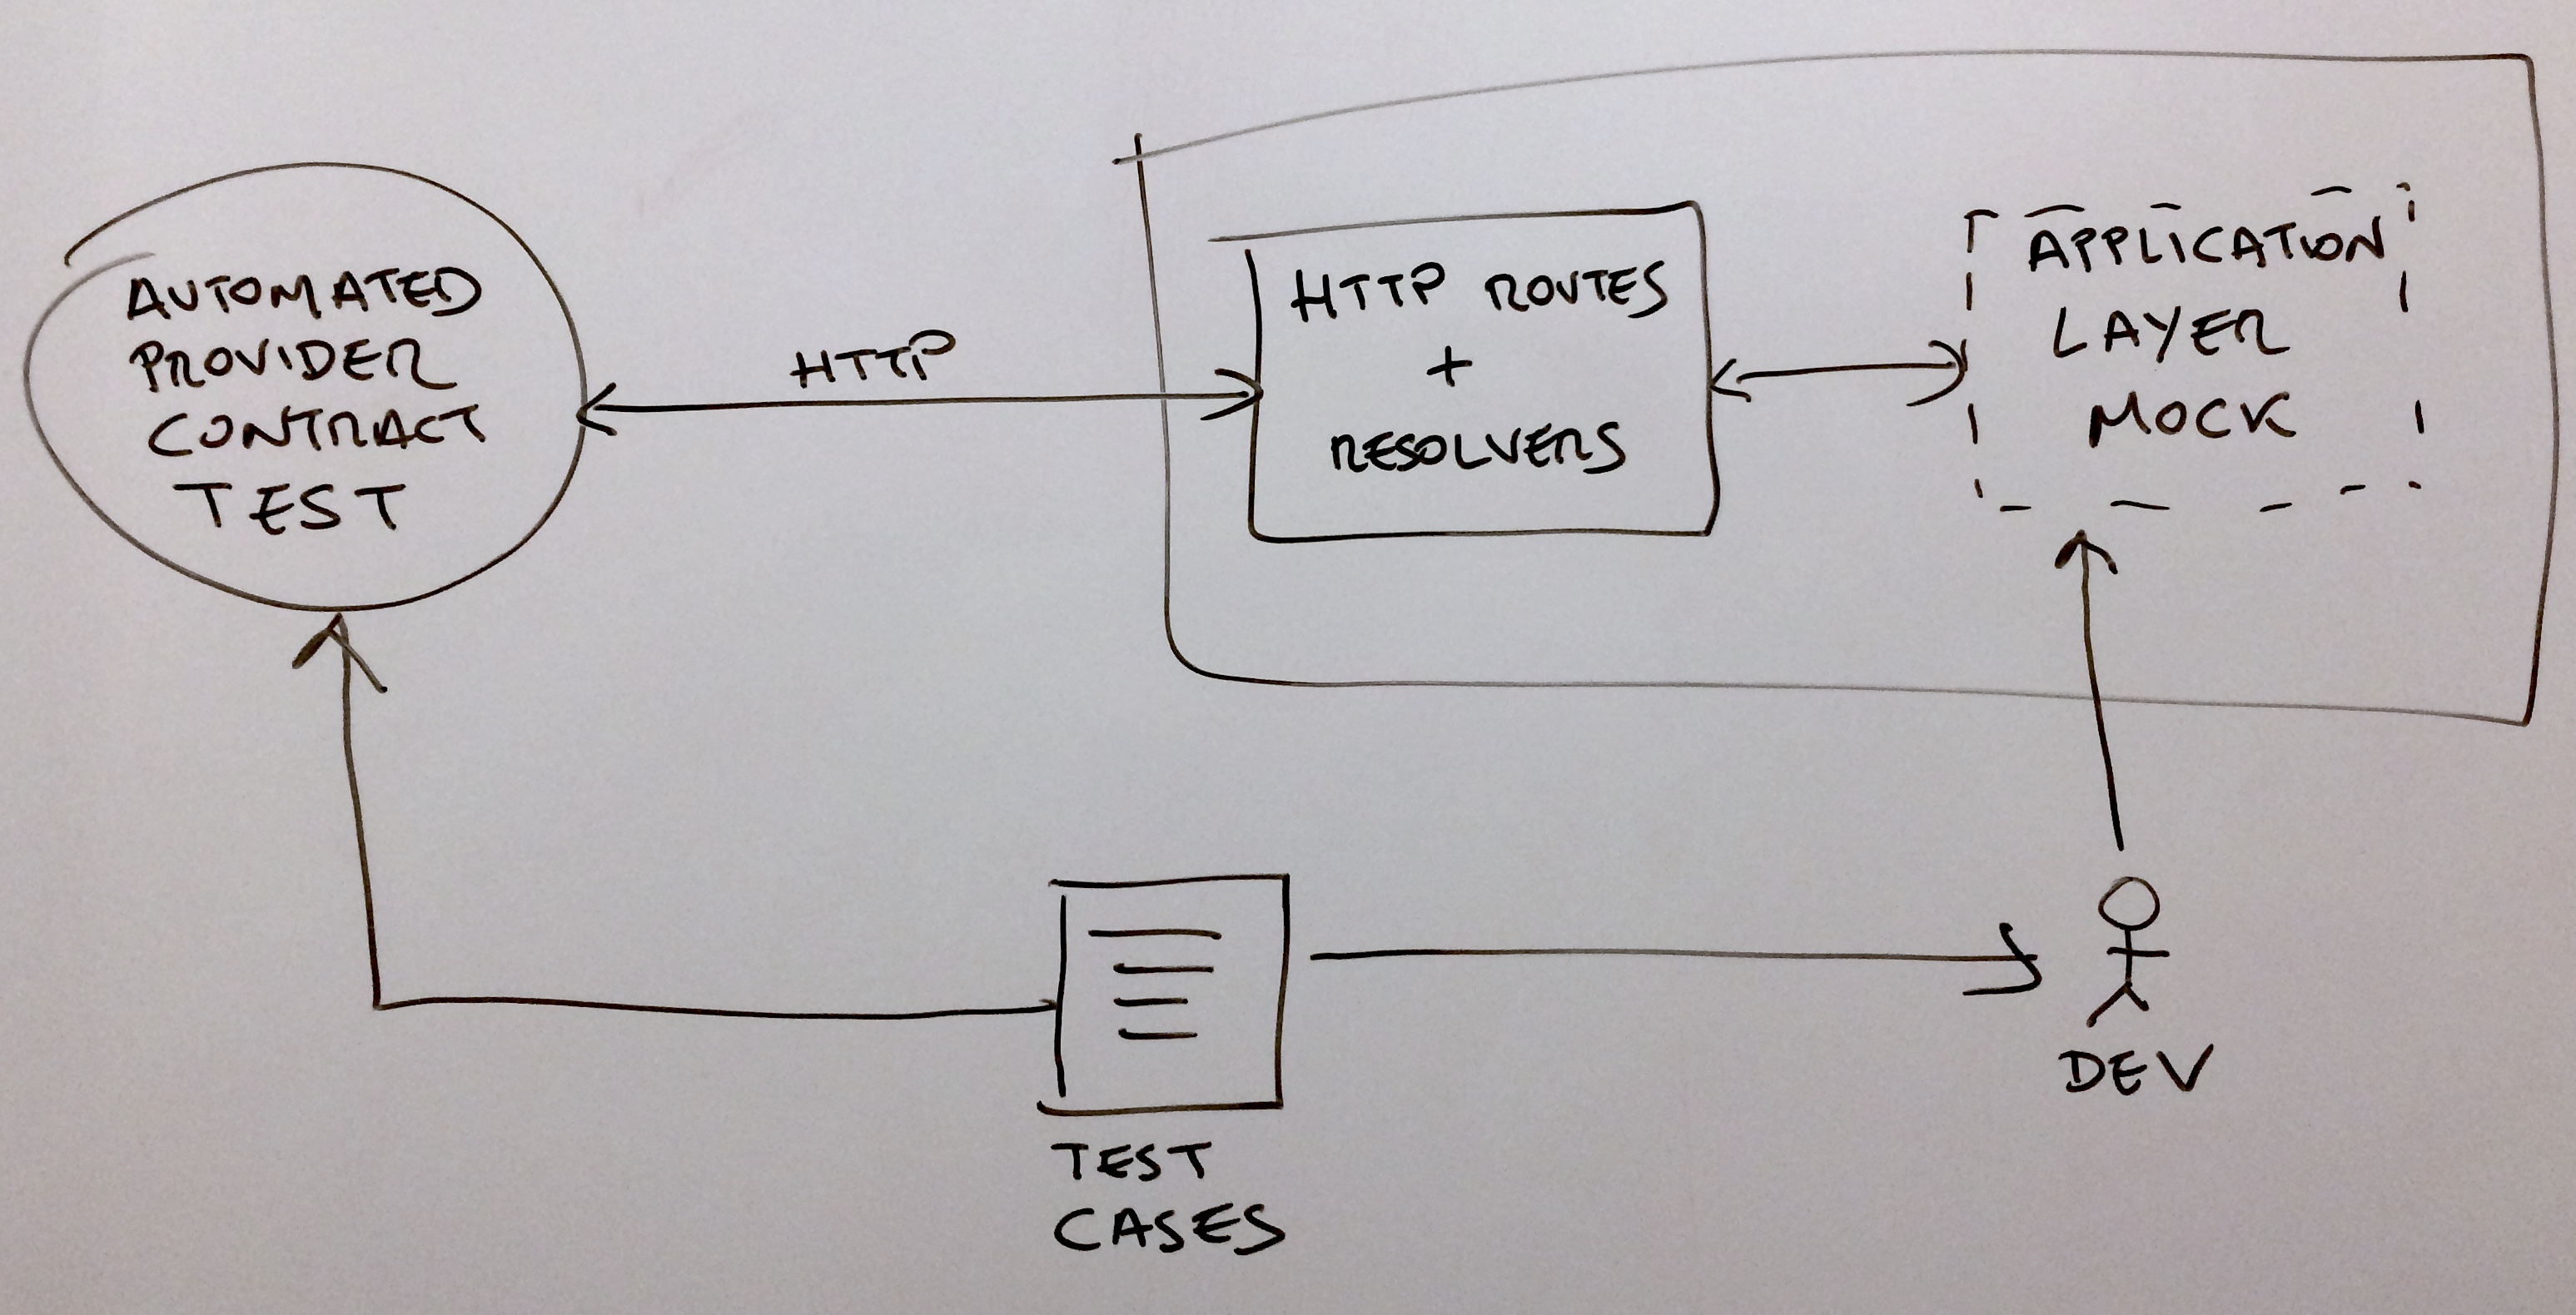 AUTOMATED
PROVIDER
CONTRACT
TEST
HTTP
HTTP ROUTES
+
RESOLVERS
APPLICATION
LAYER
MOCK
TEST
CASES
DEV